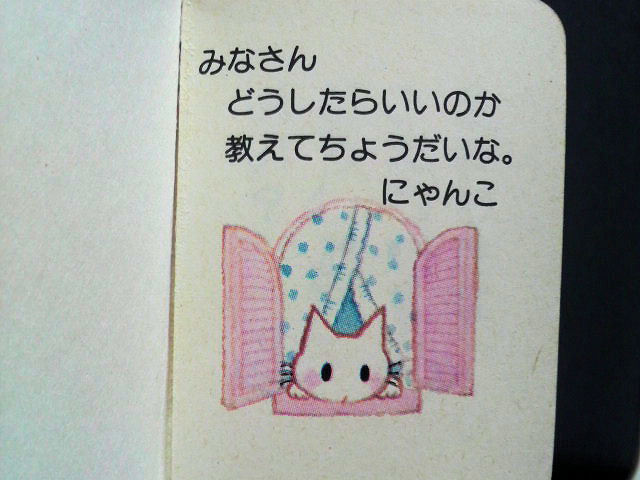 みなさん
どうしたらいいのか
教えてちょうだいな。
にゃんこ